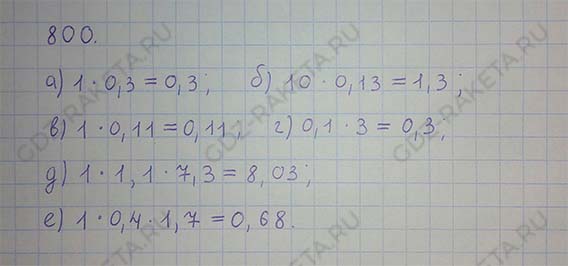 800.
а) 1 · 0,3 = 0,3; б) 10 · 0,13 = 1,3;
в) 1 · 0,11 = 0,11; г) 0,1 · 3 = 0,3;
д) 1 · 1,1 · 7,3 = 8,03;
е) 1 · 0,4 · 1,7 = 0,68.
GDZ-RAKETA.RU
GDZ-RAKETA.RU
GDZ-RAKETA.RU